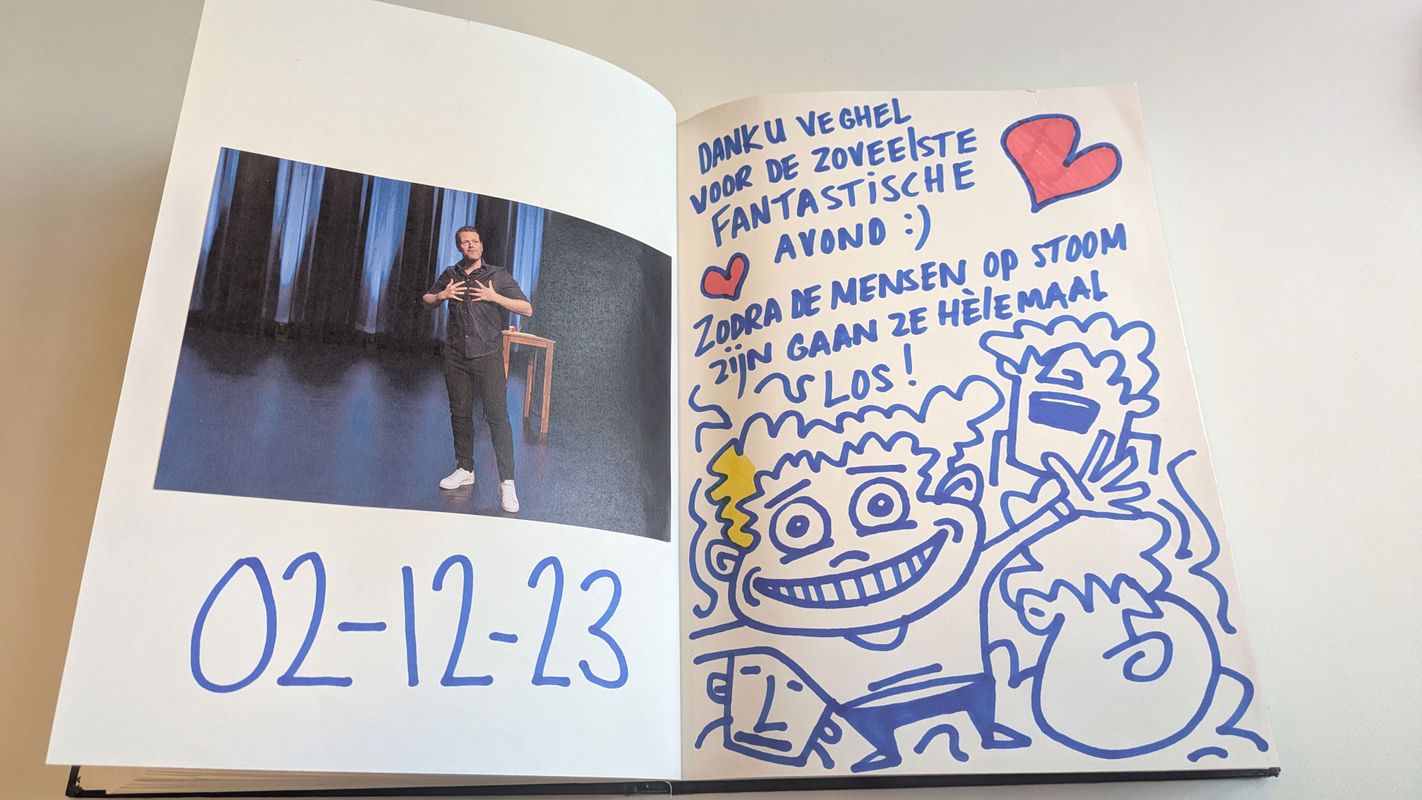 02-12-23
DANK U VEGHEL
VOOR DE ZOVEElSTE
FANTASTiSCHE
AVOND :)
ZODRA DE MENSEN OP STOOM
ZijN GAAN ZE HÈlEMAAL
LOS!